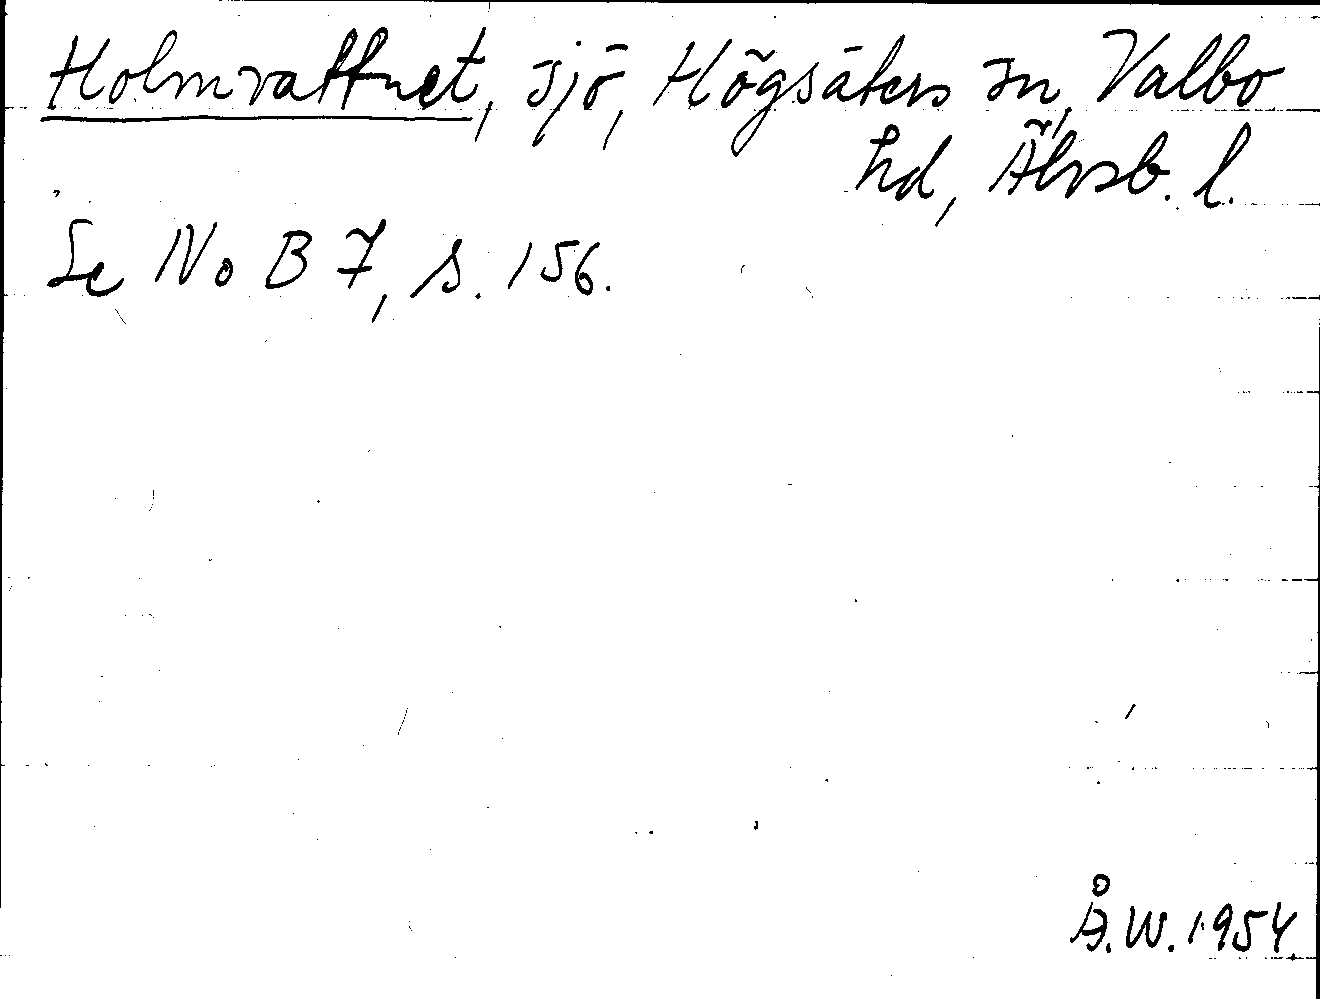 Holmvattnet, sjö, Högsäters sn, Valbo
hd, Älvsb. l.
Se No B 7, s. 156.
Å.W. 1954.